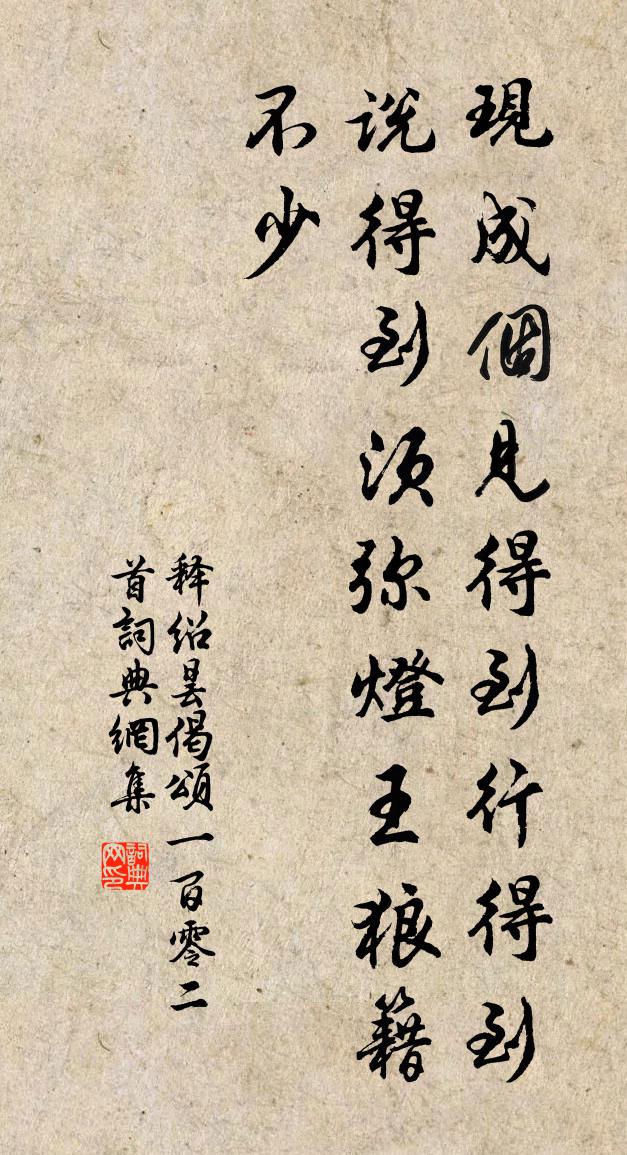 現成個見得到行得到
說得到須弥燈王狼籍
不少
释紹曇偈頌一百零二
首詞典網集
詞典
网印